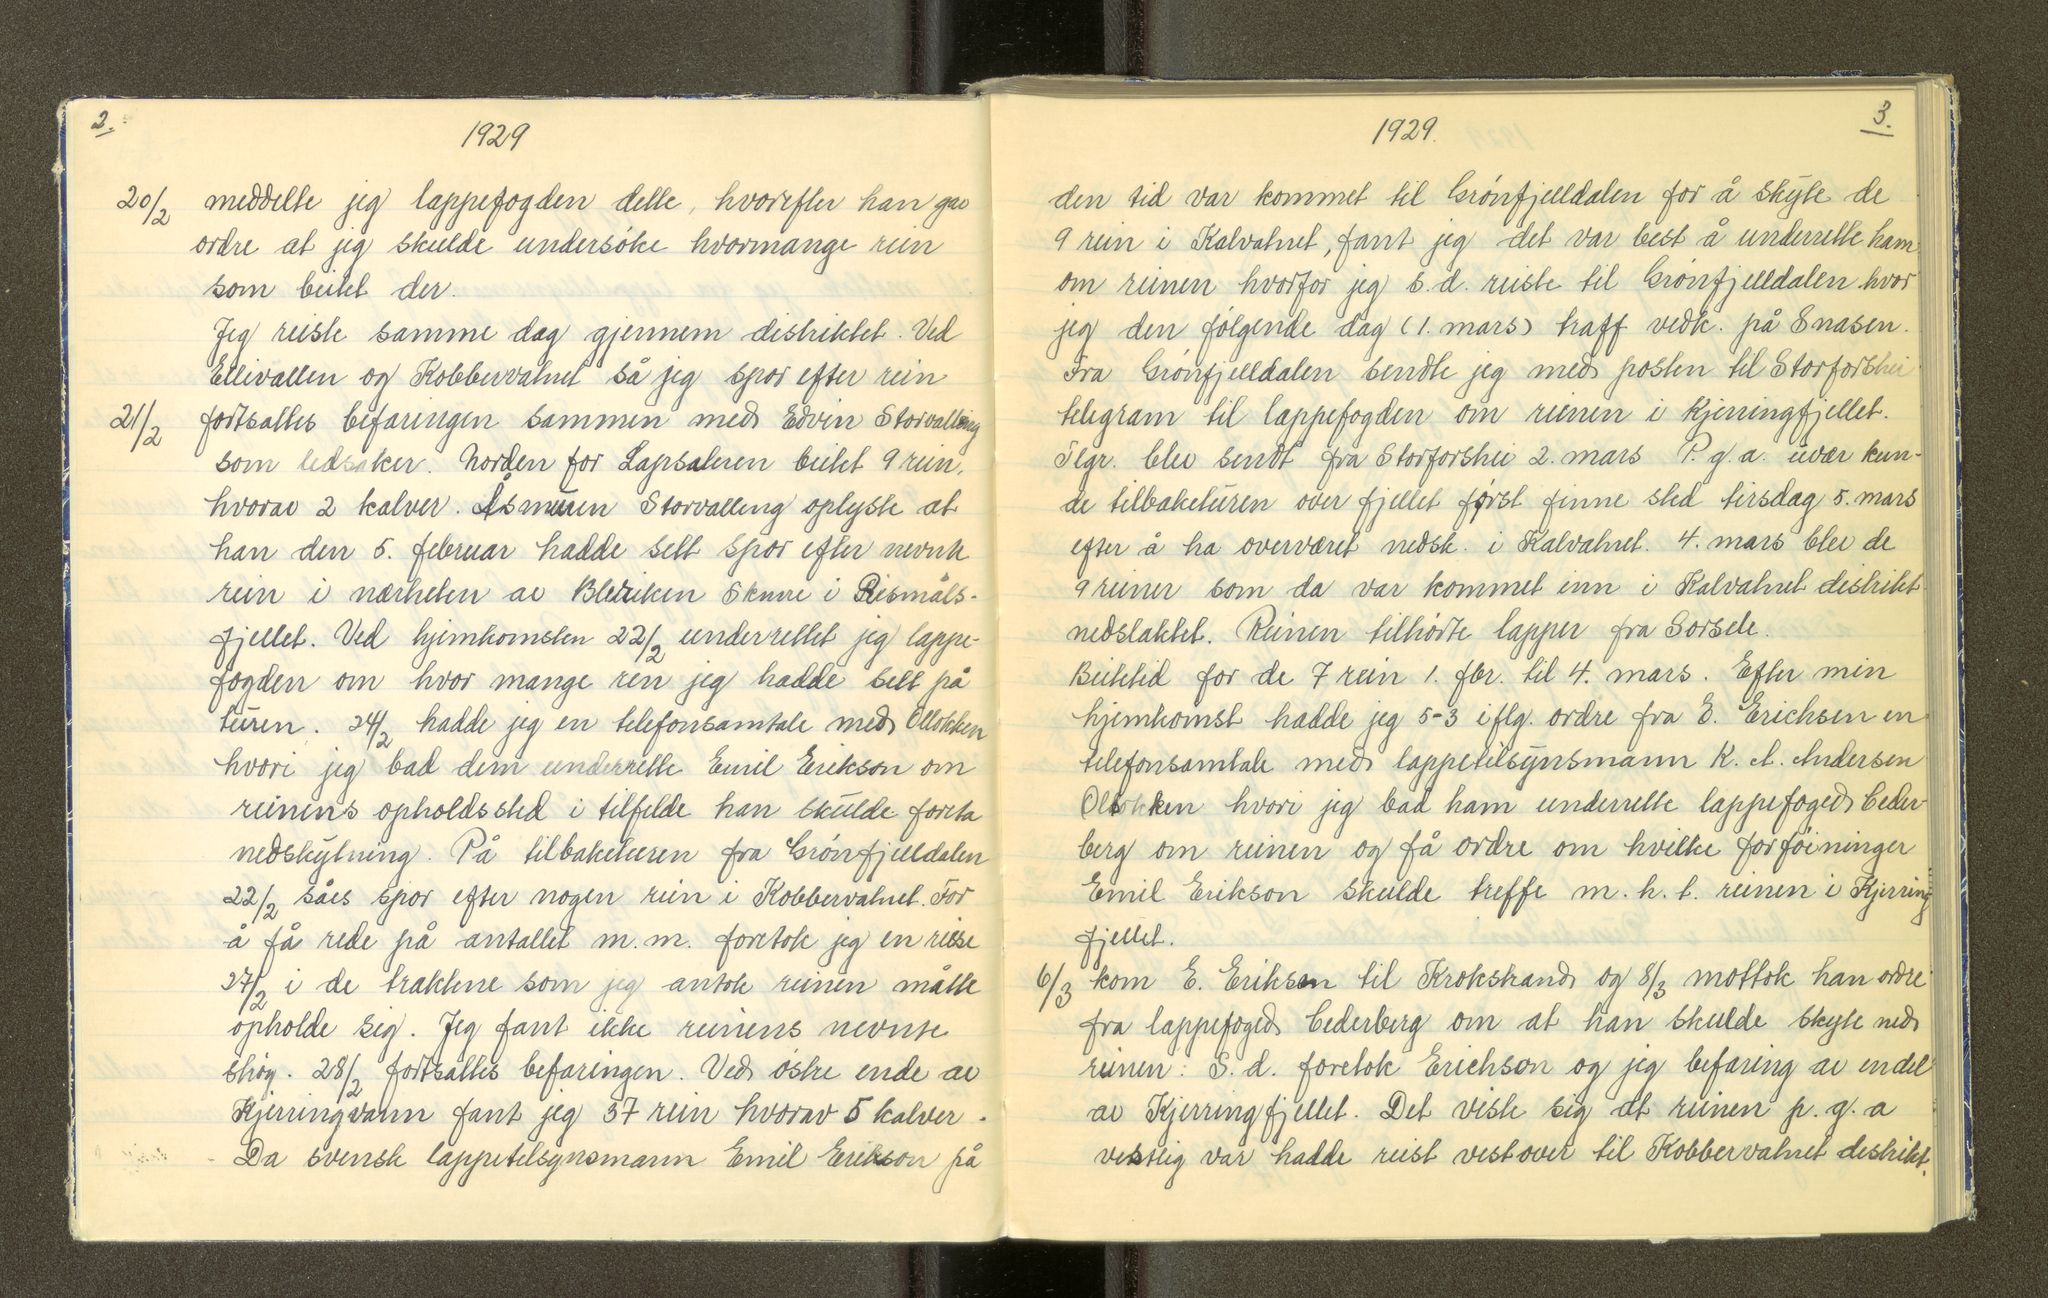 2.
1929
20/2 meddelte jeg lappefogden dette, hvorefter han gav
ordre at jeg skulde undersöke hvormange rein
som beitet der.
Jeg reiste samme dag gjennem distriktet. Ved
Ellivallen og Kobbervatnet så jeg spor efter rein
21/2 fortsattes befaringen sammen med Edvin Storvolleng
som ledsaker. Norden for beitet 9 rein,
hvorav 2 kalver. Åsmun Storvolleng oplyste at
han den 5. februar hadde sett spor efter nevnte
rein i nærheten av Bleiriken Skure i Reismåls-
fjellet. Ved hjemkomsten 22/2 underrettet jeg lappe-
fogden om hvor mange ren jeg hadde sett på
turen. 24/2 hadde jeg en telefonsamtale med Ollokken
hvori jeg bad dem underrette Emil Erikson om
reinens opholdssted i tilfelde han skulde foreta
nedskytning. På tilbaketuren fra Grönfjelldalen
22/2 såes spor efter nogen rein i Kobbervatnet. For
å få rede på antallet m.m. foretok jeg en reise
27/2 i de traktene som jeg antok reinen måtte
opholde sig. Jeg fant ikke reinens nevnte
strøg. 28/2 fortsattes befaringen. Ved östre ende av
Kjerringvann fant jeg 37 rein hvorav 5 kalver.
Da svensk lappetilsynsmann Emil Erikson på
3.
1929.
den tid var kommet til Grönfjelldalen for å skyte de
9 rein i Kalvatnet, fant jeg det var best å underrette ham
om reinen hvorfor jeg s.d. reiste til Grönfjelldalen hvor
jeg den fölgende dag (1. mars) traff vedk. på Snasen.
Fra Grönfjelldalen sendte jeg med posten til Storforshei
telegram til lappefogden om reinen i Kjerringfjellet.
Tlgr. blev sendt fra Storforshei 2. mars P.g.a. uvær kun-
de tilbaketuren over fjellet først finne sted tirsdag 5. mars
efter å ha overværet nedsk. i Kalvatnet. 4. mars blev de
9 reiner som da var kommet inn i Kalvatnet distrikt
nedslaktet. Reinen tilhörte lapper fra Sorsele.
Beitetid for de 7 rein 1. fbr. til 4. mars. Efter min
hjemkomst hadde jeg 5-3 iflg. ordre fra E. Erichsen en
telefonsamtale med lappetilsynsmann K. A. Andersen
Ollokken hvori jeg bad ham underrette lappefoged Ceder-
berg om reinen og få ordre om hvilke forföininger
Emil Erikson skulde treffe m.h.t. reinen i Kjerring
fjellet.
6/3 kom E. Erikson til Krokstrand og 8/3 mottok han ordre
fra lappefoged Cederberg om at han skulde skyte ned
reinen. S.d. foretok Erichson og jeg befaring av endel
av Kjerringfjellet. Det viste sig at reinen p.g.a
vestlig vær hadde reist vestover til Kobbervatnet distrikt.